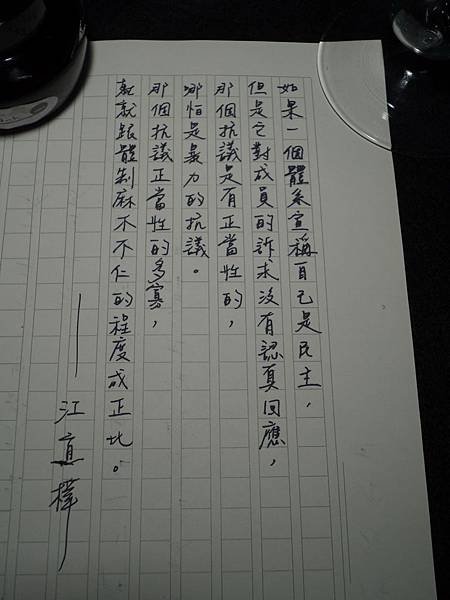 如果一個體系宣稱自己是民主，
但是它對成員的訴求沒有認真回應，
那個抗議是有正當性的，
哪怕是暴力的抗議。
那個抗議正當性的多寡，
就就跟體制麻木不仁的程度成正比。
——江宜樺